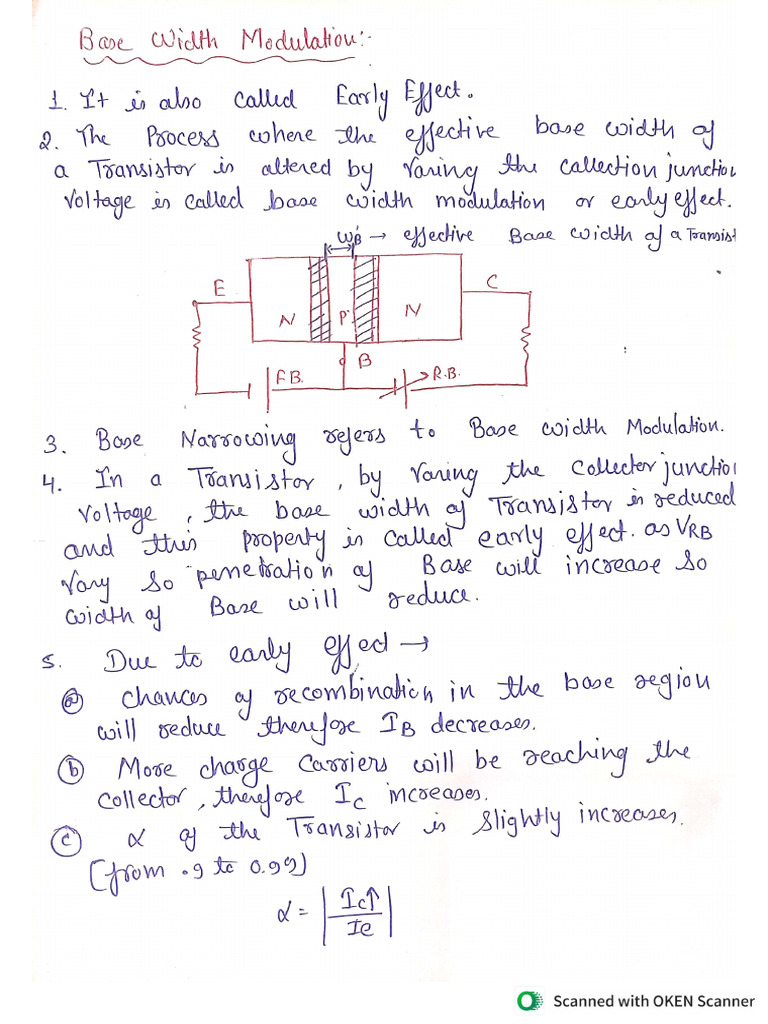 Base Width Modulation:-
1. It is also called Early Effect.
2. The Process where the effective base width of
a Transistor is altered by varing the collection junction
Voltage is called base width modulation or early effect.
W'B → effective Base width of a Transist
E
C
N
P
N
B
F.B.
R.B.
3. Base Narrowing refers to Base width Modulation.
4. In a Transistor, by varing the collector junctio
Voltage, the base width of Transistor is reduced
and this property is called early effect. as VRB
Vary so penetration of Base will increase so
width of Base will reduce.
5. Due to early effect →
(a) chances of recombination in the base region
will reduce therefore IB decreases.
(b) More charge carriers will be reaching the
collector, therefore Ic increases.
(c) α of the Transistor is slightly increases.
(from .9 to 0.99)
α = |Ic↑/Ie|
Scanned with OKEN Scanner